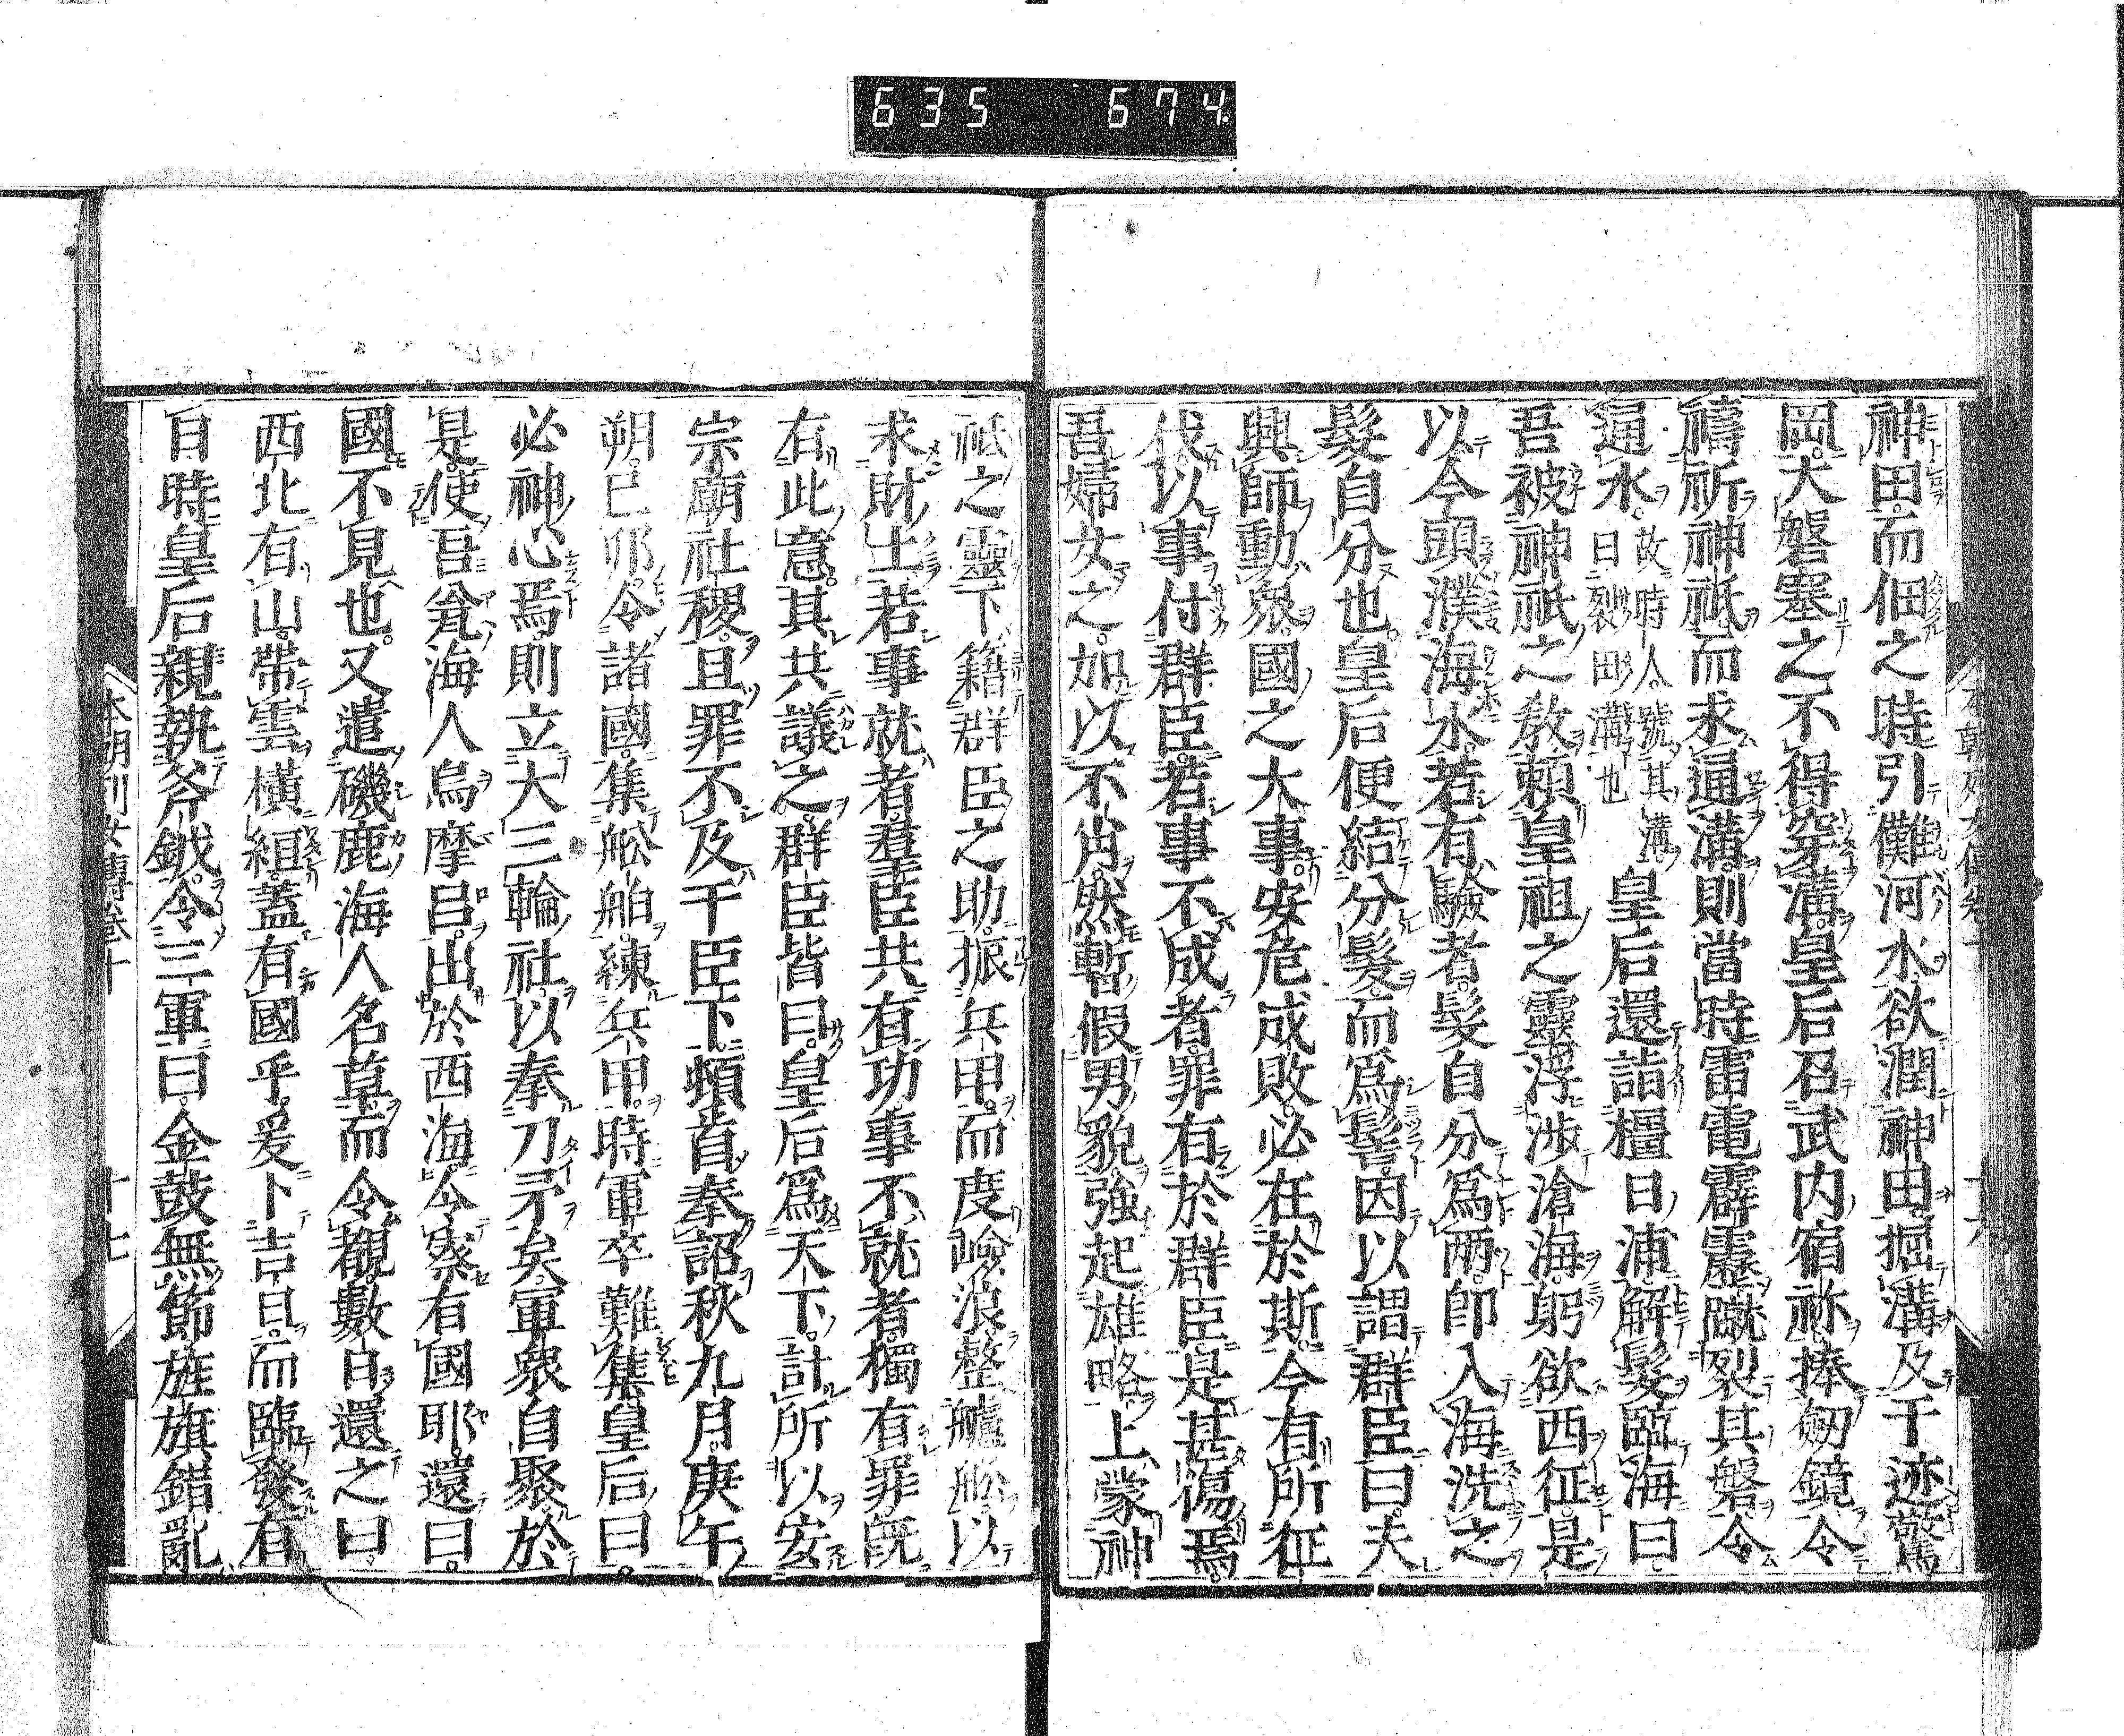 635 674
神田而佃之時引儺河水欲潤神田掘溝及于迹驚
岡大磐塞之不得穿溝皇后召武内宿祢捧劔鏡令
禱祈神祇而求通溝則當時雷電霹靂蹴裂其磐令
通水
故時人號其溝
曰裂田溝也
皇后還詣橿日浦解髮臨海曰
吾被神祇之教賴皇祖之靈浮渉滄海躬欲西征是
以今頭濮海水若有驗者髮自分爲兩卽入海洗之
髮自分也皇后便結分髮而爲髻因以謂群臣曰夫
興師動衆國之大事安危成敗必在於斯今有所征
伐以事付群臣若事不成者罪有於群臣是甚傷焉
吾婦女之加以不肖然暫假男貌強起雄略上蒙神
祇之靈下籍群臣之助振兵甲而度嶮浪整艫舩以
求財土若事就者羣臣共有功事不就者獨有罪既
有此意其共議之群臣皆曰皇后爲天下計所以安
宗廟社稷且罪不及于臣下頓首奉詔秋九月庚午
朔己卯令諸國集舩舶練兵甲時軍卒難集皇后曰
必神心焉則立大三輪社以奉刀矛矣軍衆自聚於
是使吾瓮海人烏摩呂出於西海令察有國耶還曰
國不見也又遣磯鹿海人名草而令覩數日還之曰
西北有山帶雲橫絙蓋有國乎爰卜吉日而臨發有
日時皇后親執斧鉞令三軍曰金鼓無節旌旗錯亂
本朝列女傳卷十 十七
本朝列女傳卷十 十六